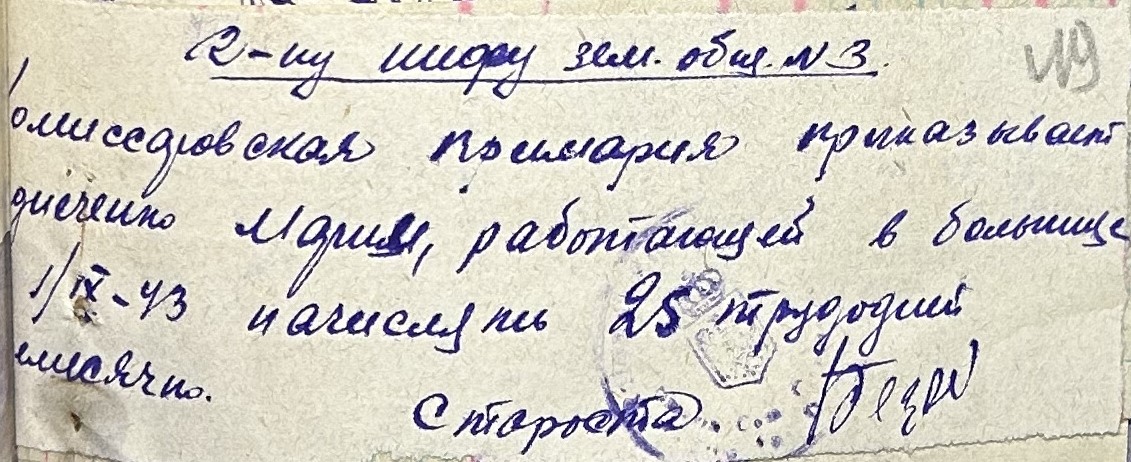 2-му шефу зем. общ. №3.
119
омиссаровская примария приказывает
дисченко Марии, работающей в больнице
1/IX-43 начислять 25 трудодней
емесячно.
Староста